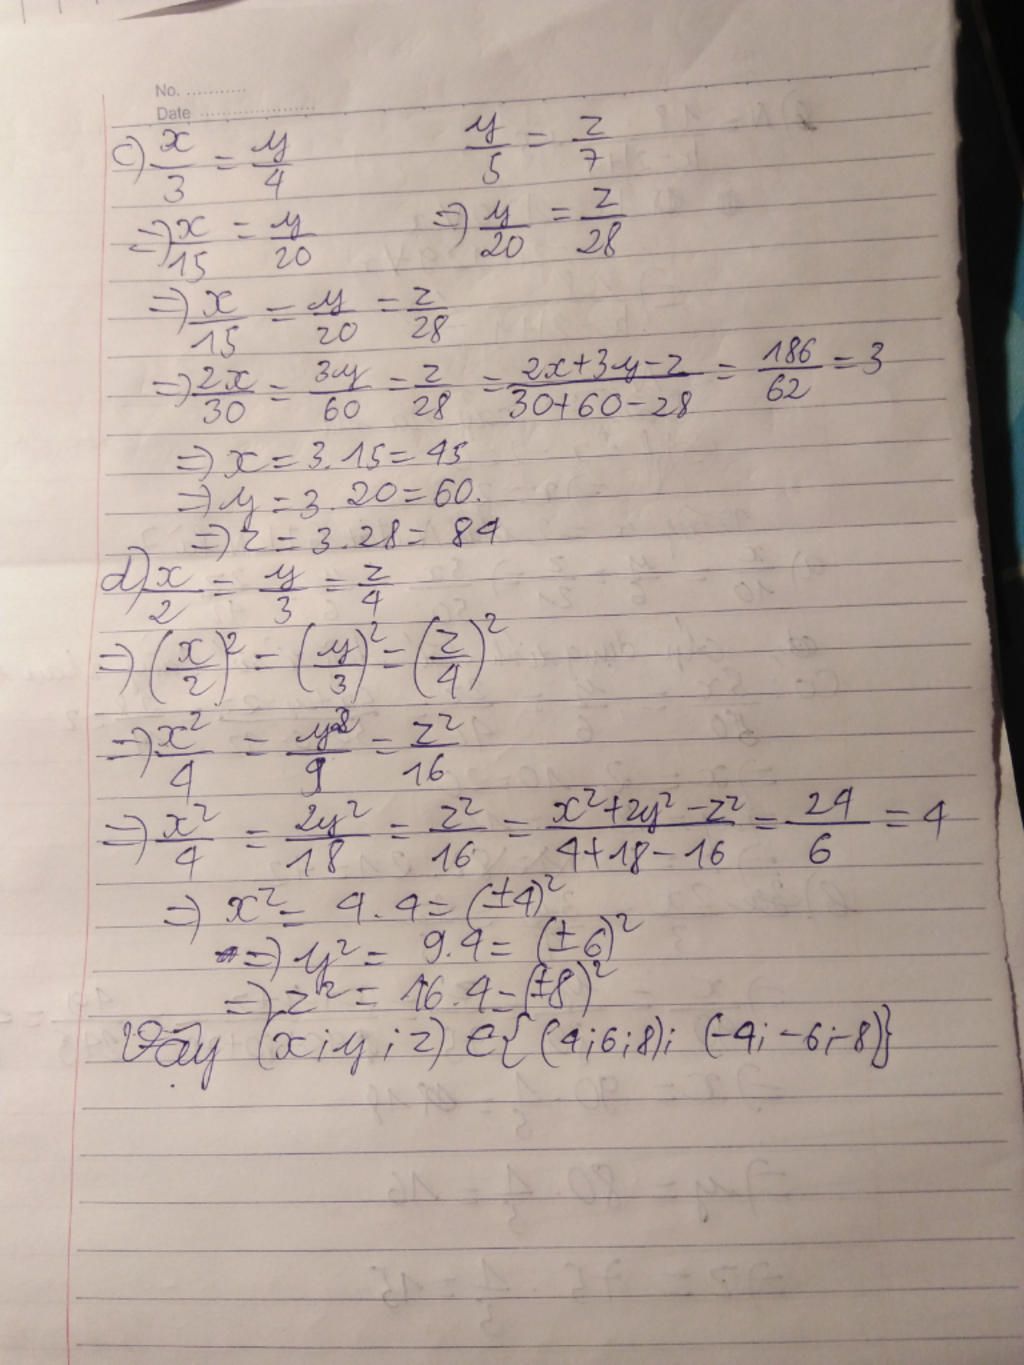 No. ...........
Date ......................
c) x/3 = y/4 y/5 = z/7
=> x/15 = y/20 => y/20 = z/28
=> x/15 = y/20 = z/28
=> 2x/30 = 3y/60 = z/28 = (2x+3y-z)/(30+60-28) = 186/62 = 3
=> x = 3.15 = 45
=> y = 3.20 = 60.
=> z = 3.28 = 84
d) x/2 = y/3 = z/4
=> (x/2)² = (y/3)² = (z/4)²
=> x²/4 = y²/9 = z²/16
=> x²/4 = 2y²/18 = z²/16 = (x²+2y²-z²)/(4+18-16) = 24/6 = 4
=> x² = 4.4 = (±4)²
=> y² = 9.4 = (±6)²
=> z² = 16.4 = (±8)²
Vậy (x;y;z) ∈ {(4;6;8); (-4;-6;-8)}